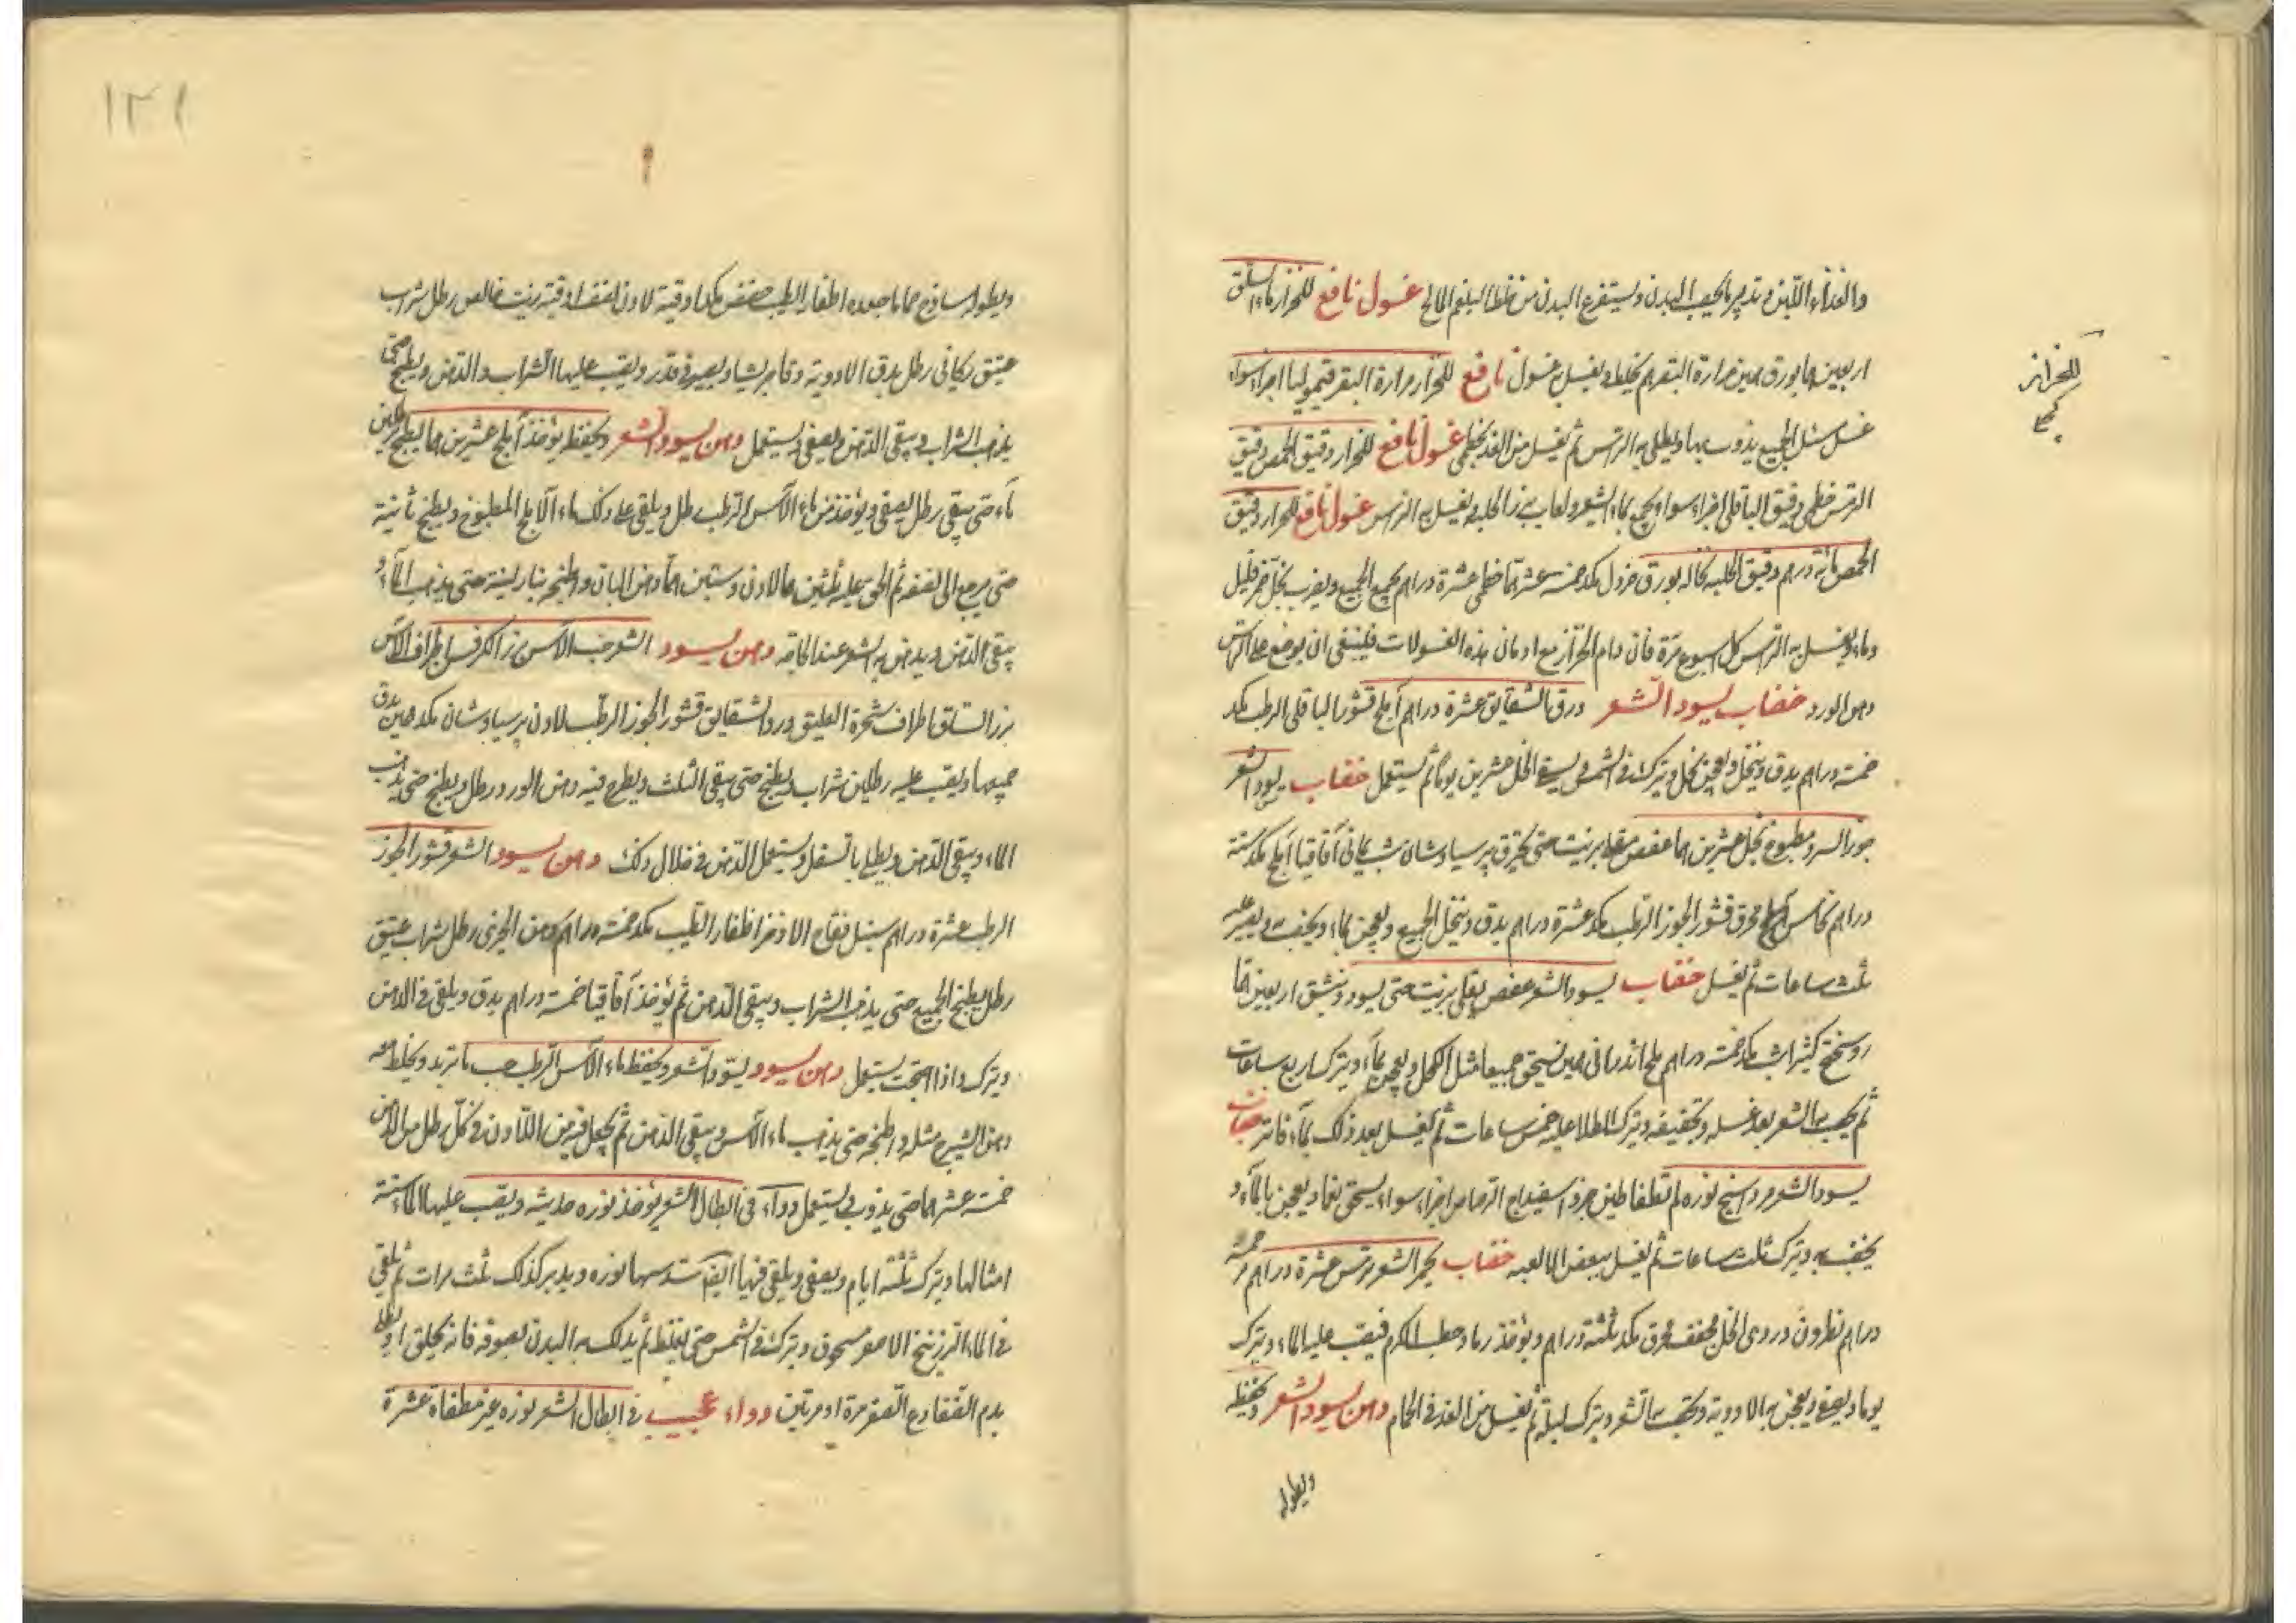 والغذاء اللين وتدبير ما يخصب البدن ويستفرغ البدن من خلط البلغم المالح غسول نافع للحزاز ماء السلق
اربعين هما بورق مرارة البقر يخلط ويغسل به غسول نافع للحزاز مرارة البقر اجزاء سواء
عسل مثل الجميع يذوب بها ويطلى به الراس ثم يغسل من الغد بخطمى غسول نافع للحزاز دقيق الحمص دقيق
الترمس خطمى دقيق الباقلى اجزاء سواء يعجن بماء الشعير ولعاب بزر الحلبة ويغسل به الراس غسول نافع للحزاز دقيق
الحمص مائة درهم دقيق الحلبة نخاله بورق خردل مكد خمسة عشر هما خطمى عشرة دراهم يجمع الجميع ويضرب بخل خمر قليل
وماء ويغسل به الراس كل اسبوع مرة فان دام الحزاز مع ادمان هذه الغسولات فينبغى ان يوضع على الراس
دهن الورد خضاب يسود الشعر ورق الشقايق عشرة دراهم آملج قشور الباقلى الرطب مكد
خمسة دراهم يدق وينخل ويعجن بخل ويترك فى الشمس يسقى الخل عشرين يوما ثم يستعمل خضاب يسود الشعر
جوز السرو مطبوخ بخل عشرين هما عفص مقلى بزيت حتى يحترق برسياوشان شب يمانى آقاقيا آملج مكد ستة
دراهم نحاس محرق قشور الجوز الرطب مكد عشرة دراهم يدق وينخل الجميع ويعجن بماء ويخضب ويصبر عليه
ثلث ساعات ثم يغسل خضاب يسود الشعر عفص يقلى بزيت حتى يسود وينشق اربعين هما
روسختج كثيرا شب مكد خمسة دراهم ملح اندرانى يسحق جميعا مثل الكحل ويعجن بماء ويترك اربع ساعات
ثم يخضب به الشعر بعد غسله وتجفيفه ويترك الطلا عليه خمس ساعات ثم يغسل بعد ذلك بماء فاتر خضاب
يسود الشعر مرداسنج نوره لم تطفا طين حر واسفيداج الرصاص اجزاء سواء يسحق ناعما ويعجن بالماء و
يخضب به ويترك ثلث ساعات ثم يغسل ببعض الالعبه خضاب يحمر الشعر ترمس عشرة دراهم مر خمسة
دراهم نطرون دردى الخل مجفف محرق مكد ثلثة دراهم ويؤخذ رماد حطب الكرم فيصب عليه الماء ويترك
يوما ويصفى ويعجن به الادوية ويخضب به الشعر ويترك ليلة ثم يغسل من الغد فى الحمام دهن يسود الشعر ويحفظه
ويطوله
للحزاز
١٣١
ويطوله ساذج هما ما جعده اظفار الطيب مكد اوقية لادن نصف اوقية زيت خالص رطل شراب
عتيق ريحانى رطل يدق الادوية دقا جريشا ويصير فى قدر ويصب عليها الشراب والدهن ويطبخ حتى
يذهب الشراب ويبقى الدهن ويصفى ويستعمل دهن يسود الشعر ويحفظ يؤخذ آملج عشرين هما يطبخ
ماء حتى يبقى رطل يصفى ويؤخذ من ماء الآس الرطب رطل ويلقى على ذلك ماء الآملج المطبوخ ويطبخ ثانية
حتى يرجع الى نصفه ثم الق عليه ثلثين هما لادن وستين هما دهن البان واطبخه بنار لينة حتى يذهب الماء و
يبقى الدهن ويدهن به الشعر عند الحاجة دهن يسود الشعر حب الآس بزر الكرفس اطراف الآس
بزر السلق اطراف شجرة العليق ورد الشقايق قشور الجوز الرطب لادن برسياوشان مكد يدق
جميعها ويصب عليه رطلين شراب ويطبخ حتى يبقى الثلث ويطرح فيه دهن الورد رطل ويطبخ حتى يذهب
الماء ويبقى الدهن ويطلى بالثفل ويستعمل الدهن فى خلال ذلك دهن يسود الشعر قشور الجوز
الرطب عشرة دراهم سنبل فقاح الاذخر اظفار الطيب مكد خمسة دراهم دهن الخيرى رطل شراب عتيق
رطل يطبخ الجميع حتى يذهب الشراب ويبقى الدهن ثم يؤخذ آقاقيا خمسة دراهم يدق ويلقى فى الدهن
ويترك واذا احتجت يستعمل دهن يسود يسود الشعر ويحفظ ماء الآس الرطب حسب ما تريد ويخلط معه
دهن الشيرج مثله واطبخه حتى يذهب ماء الآس ويبقى الدهن ثم يجعل فيه من اللادن فى كل رطل من الدهن
خمسة عشر هما حتى يذوب ويستعمل دواء فى ابطال الشعر يؤخذ نوره حديثه ويصب عليها الماء ستة
امثالها ويترك ثلثة ايام ويصفى ويلقى فيها ايضا سدسها نوره ويدبر كذلك ثلث مرات ثم يلقى
فى الماء الزرنيخ الاصفر مسحوق ويترك فى الشمس حتى يغلظ ثم يدلك به البدن بصوفه فانه يحلق او يطلى
بدم الضفادع الصفر مرة او مرتين دواء عجيب فى ابطال الشعر نوره غير مطفاة عشرة